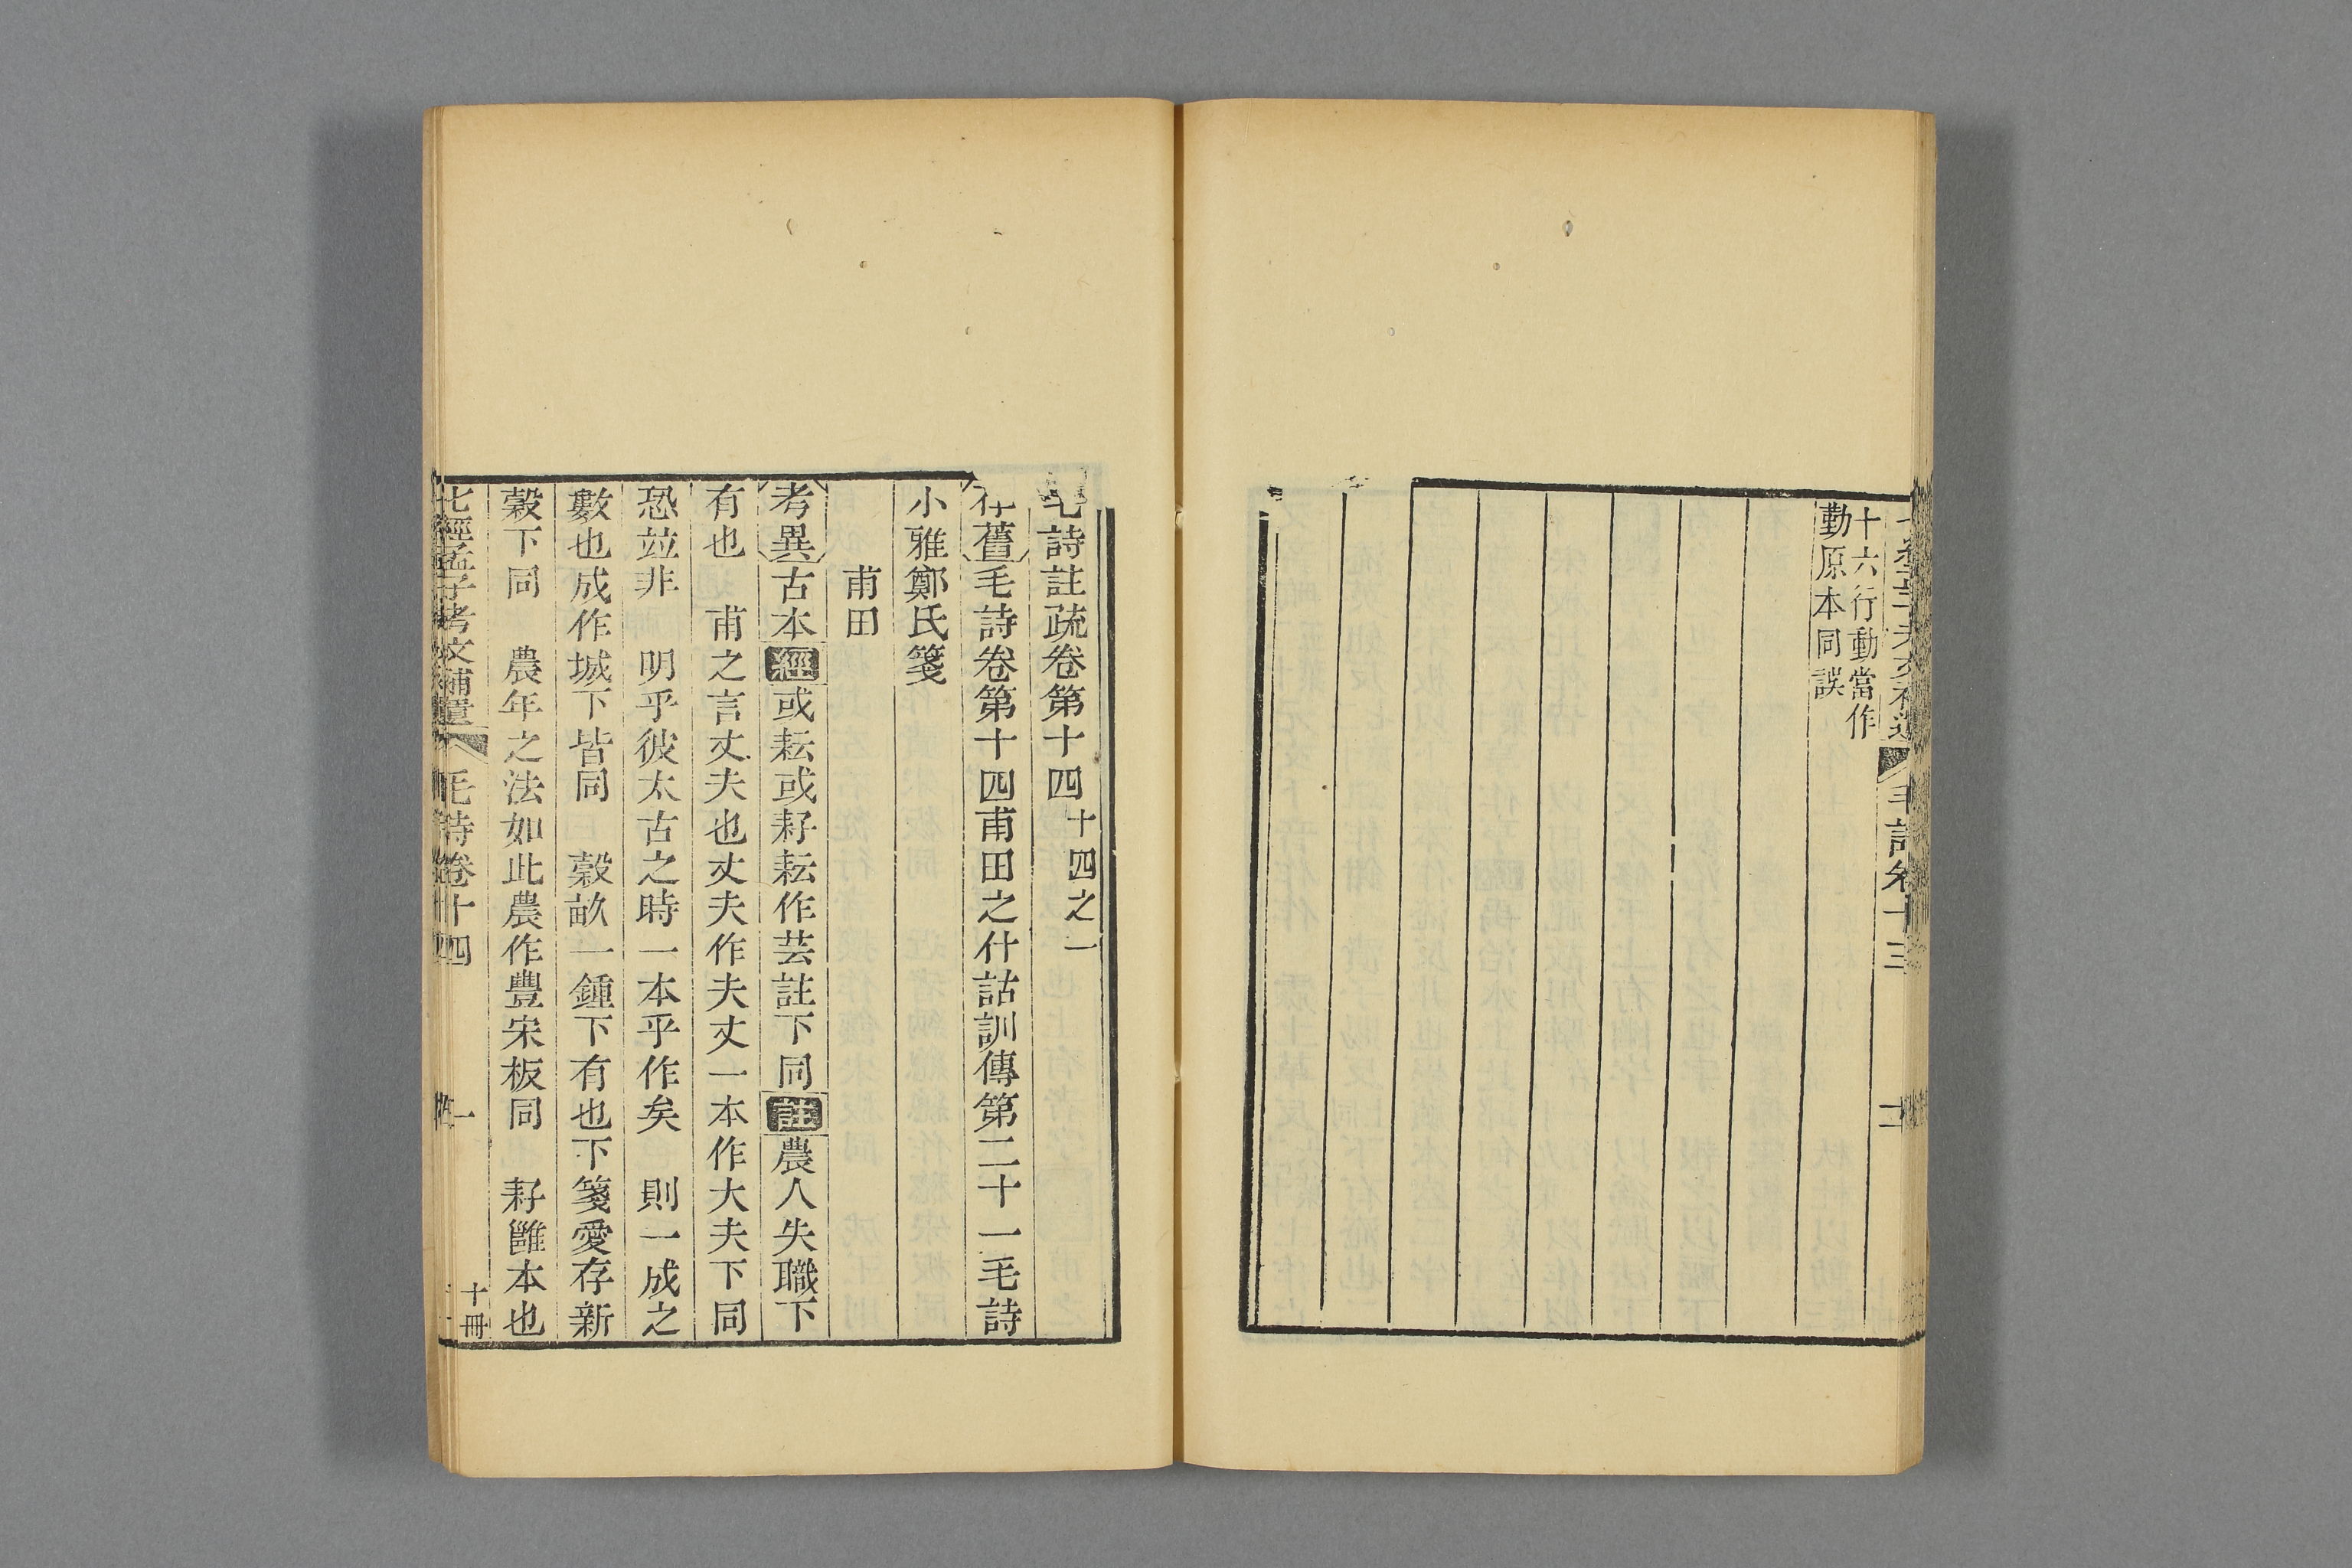 十六行動當作
勤原本同誤
毛詩註疏卷第十四 十四之一
存舊 毛詩卷第十四甫田之什詁訓傳第二十一毛詩
小雅鄭氏箋
甫田
考異 古本 經 或耘或耔耘作芸註下同 註 農人失職下
有也 甫之言丈夫也丈夫作夫丈一本作大夫下同
恐竝非 明乎彼太古之時一本乎作矣 則一成之
數也成作城下皆同 穀畝一鍾下有也下箋愛存新
穀下同 農年之法如此農作豐宋板同 耔雝本也
七經孟子考文補遺 毛詩卷十四 一 十冊